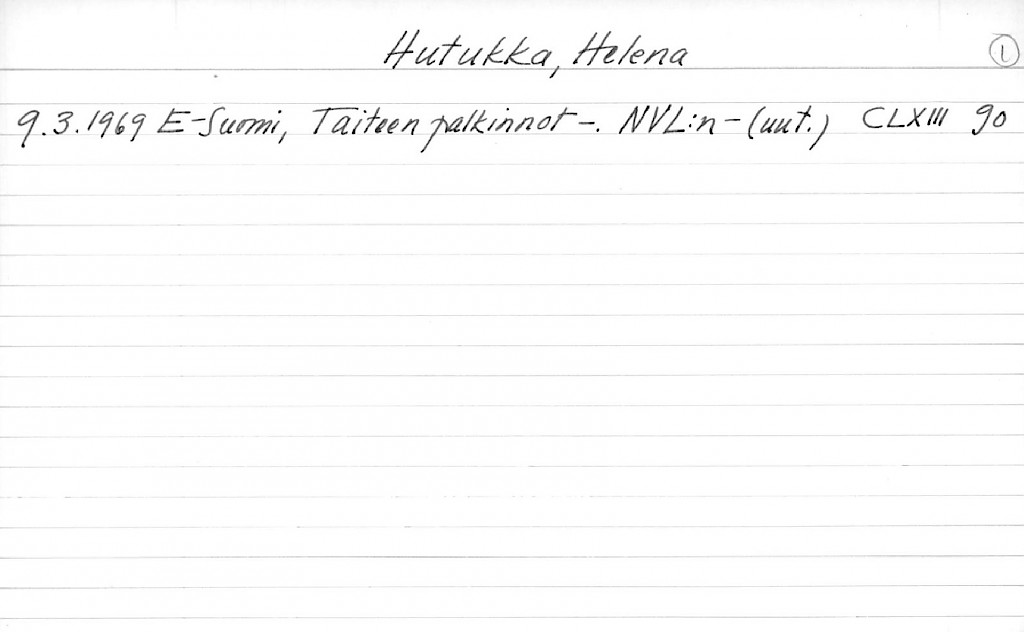 Hutukka, Helena 1
9.3.1969 E-Suomi, Taiteen palkinnot -. NVL:n - (uut.) CLXIII 90